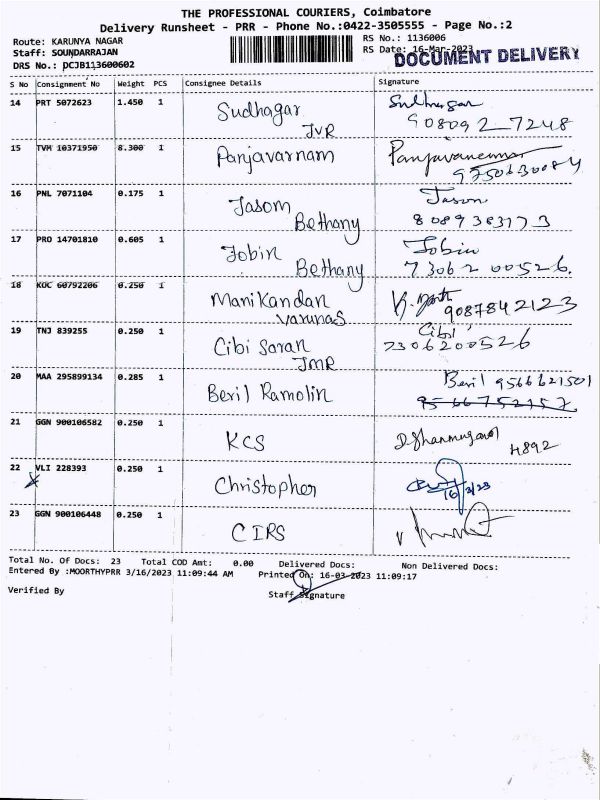 THE PROFESSIONAL COURIERS, Coimbatore
Delivery Runsheet - PRR - Phone No.:0422-3505555 - Page No.:2
Route: KARUNYA NAGAR
RS No.: 1136006
Staff: SOUNDARRAJAN
RS Date: 16-Mar-2023
DOCUMENT DELIVERY
DRS No.: DCJB113600602
S No Consignment No Weight PCS Consignee Details Signature
14 PRT 5072623 1.450 1 Sudhagar
JVR
9080927248
15 TVM 10371950 8.300 1 Panjavarnam
9750630084
16 PNL 7071104 0.175 1 Jasom Jason
Bethany 8089383173
17 PRO 14701810 0.605 1 Jobin Jobin
Bethany 7306200526.
18 KOC 60792206 0.250 1 Manikandan
Varunas 9087842123
19 TNJ 839255 0.250 1 Cibi Saran Cibi
JMR 7306200526
20 MAA 295899134 0.285 1 Beril Ramolin Beril 9566621501
21 GGN 900106582 0.250 1 KCS
4892
22 VLI 228393 0.250 1 Christopher
16/3/23
23 GGN 900106448 0.250 1 CIRS
Total No. Of Docs: 23 Total COD Amt: 0.00 Delivered Docs: Non Delivered Docs:
Entered By :MOORTHYPRR 3/16/2023 11:09:44 AM Printed On: 16-03-2023 11:09:17
Verified By
Staff Signature